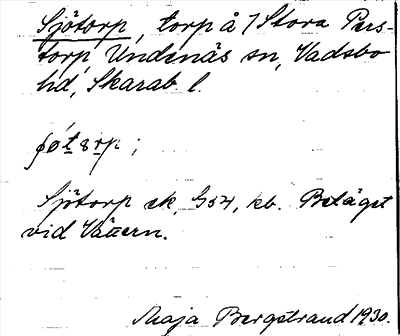 Sjötorp, torp å 1 Stora Pers-
torp, Undenäs sn, Vadsbo
hd, Skarab. l.
ʃö́tɵrp;
Sjötorp ek, G54, kb. Beläget
vid Vättern.
Maja Bergstrand 1930.